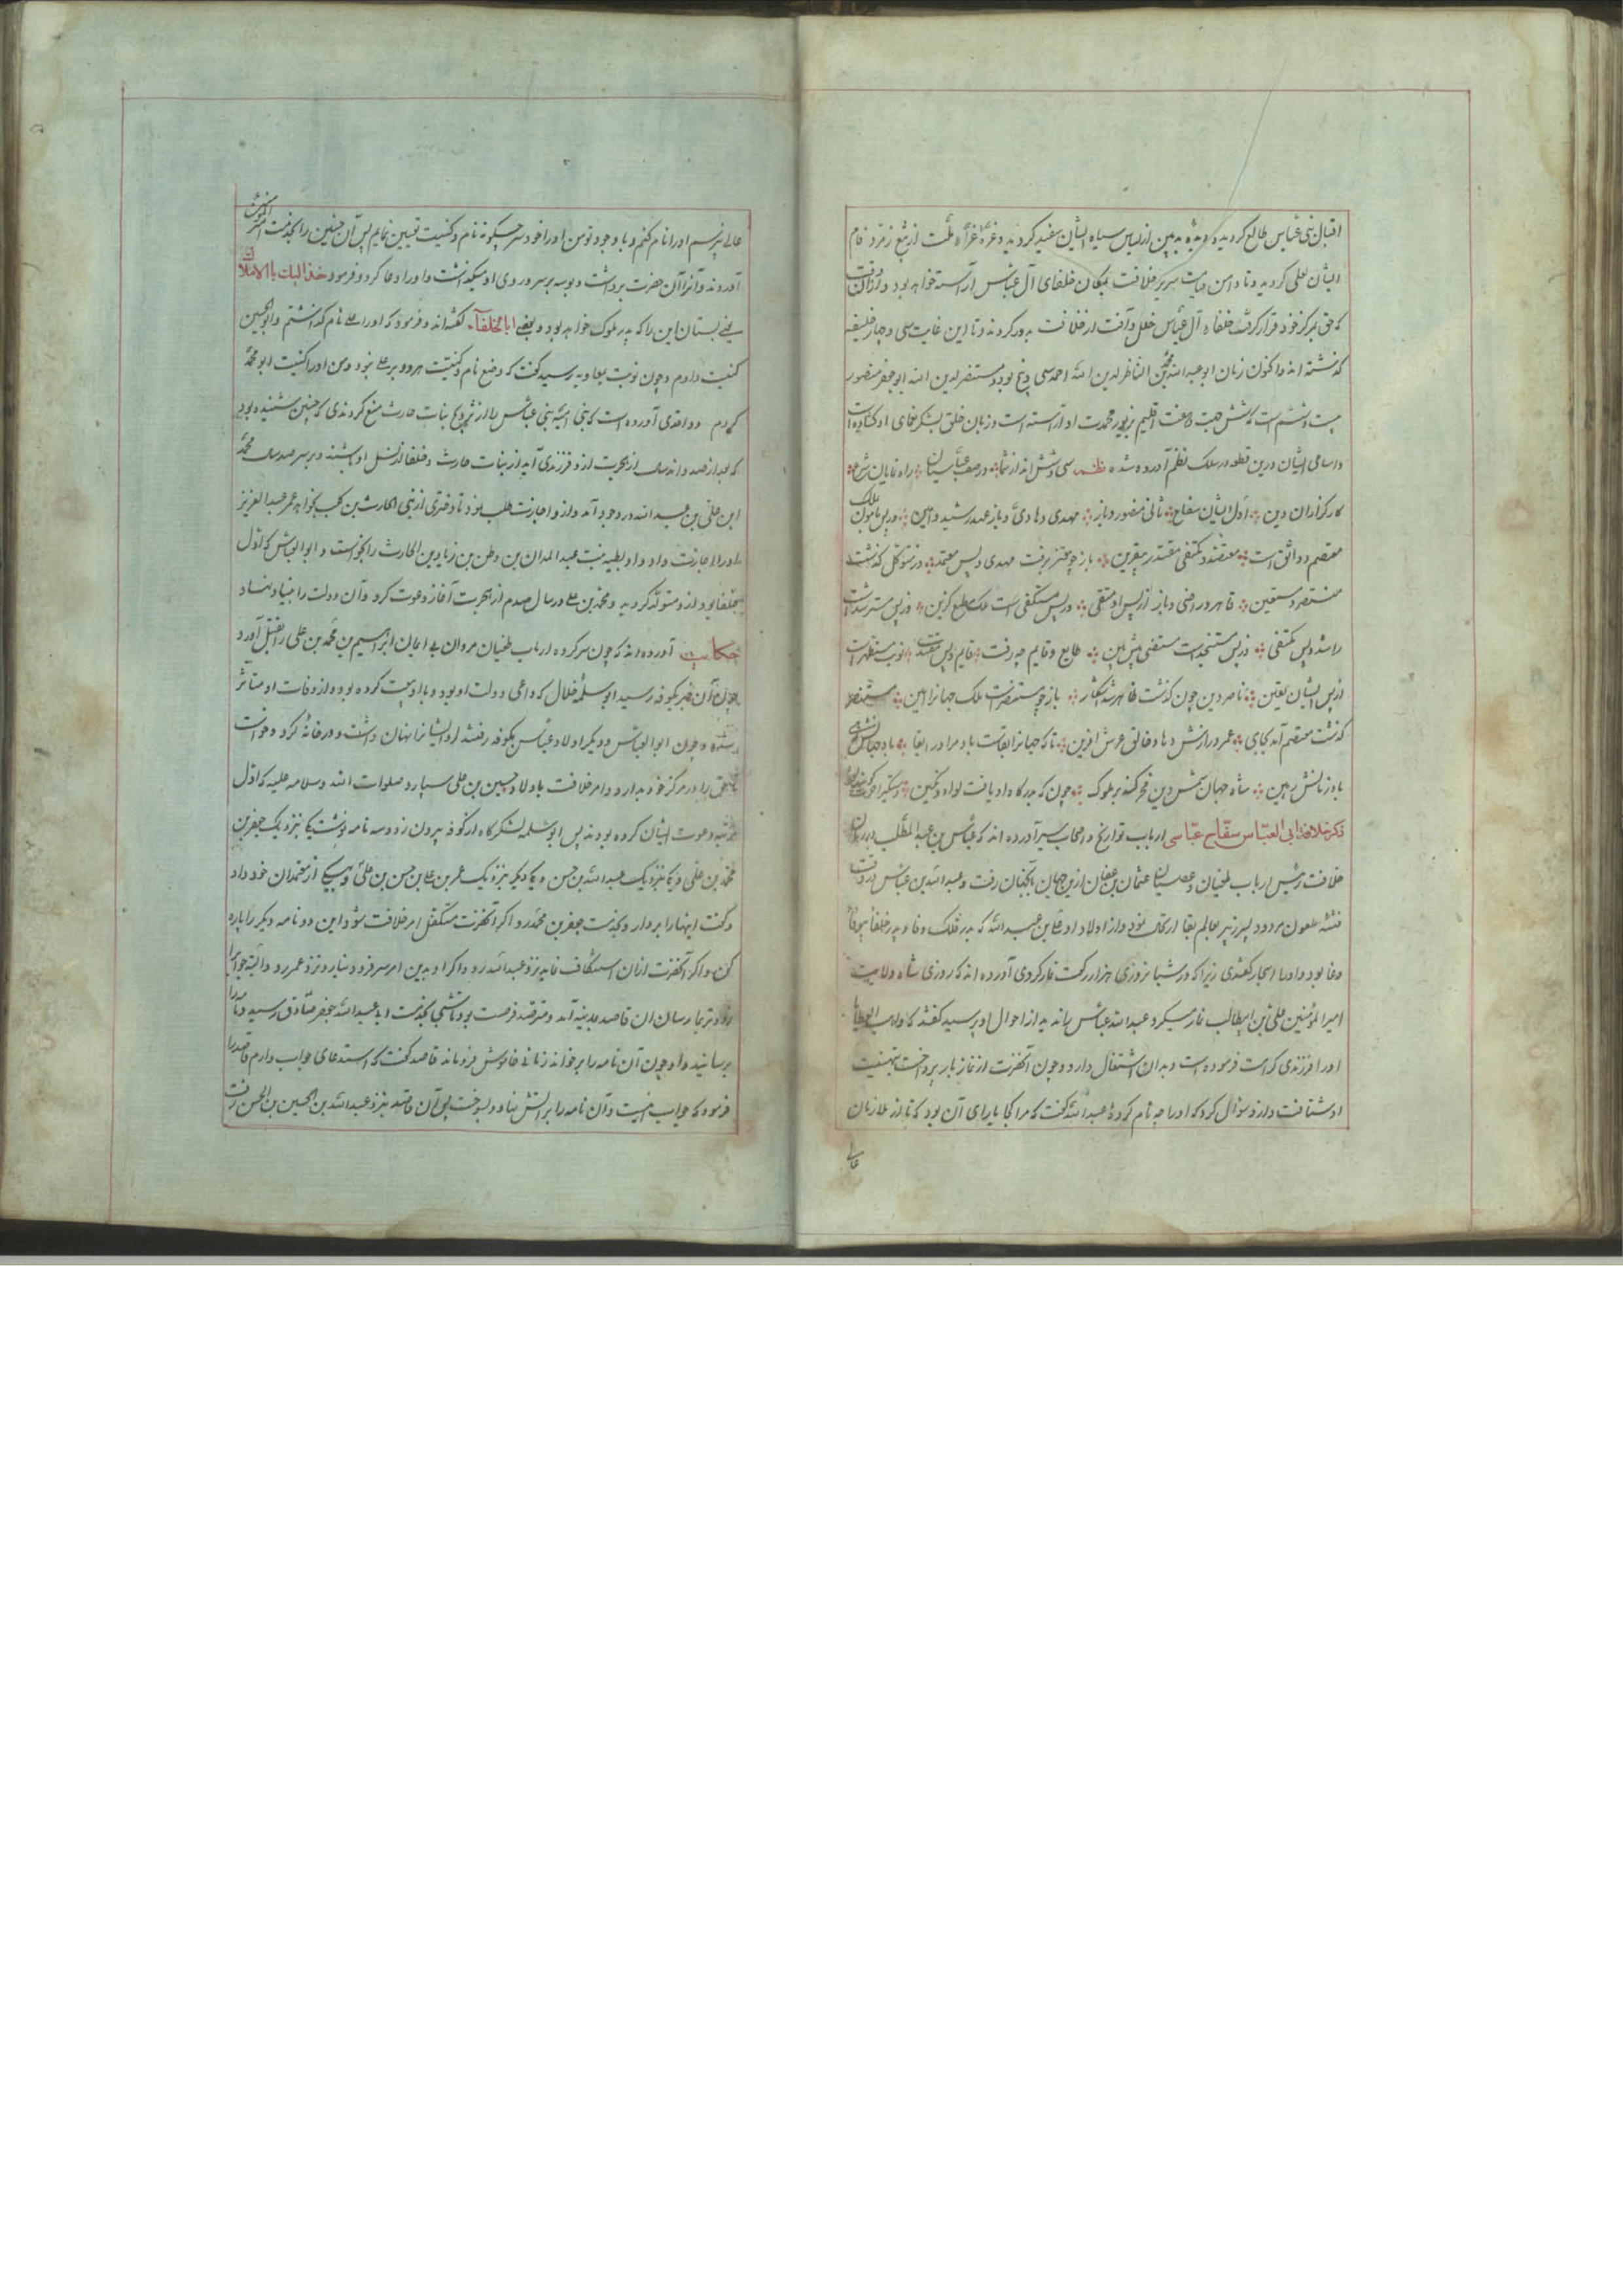 اقبال بنی عباس طالع کردید و دیده بدبین از لباس سیاه ایشان سفید کردید و غره غراء ملت از تیغ زمرد فام
ایشان لعلی کردید و تا دامن قیامت سریر خلافت بمکان خلفای آل عباس آراسته خواهد بود و از آن وقت
که حق بمرکز خود قرار گرفت خلفاء آل عباس خلل و آفت از خلافت بدور کردند و تا این غایت سی و چهار خلیفه
گذشته اند و اکنون زمان ابو عبد الله محمد بن الناظر لدین الله احمد سی و پنج بود و مستنصر لدین الله ابو جعفر منصور
بیست و ششم است که شش جهت و هفت اقلیم بزیور محمدت او آراسته است و زبان خلق بشکر نعمای او کشاده است
و اسامی ایشان درین قطعه در سلک نظم آورده شده نظم سی و شش اند از شمار در صف عباسیان راه نمایان شرع
کارگزاران دین اول ایشان سفاح ثانی منصور و باز مهدی و هادی و باز عمد رشید و امین در پس مامون ملک
معتصم و واثق است معتضد و مکتفی مقتدر بیقرین باز چو معتز برفت مهدی و پس معتمد وز متوکل گذشت
منتصر و مستعین قاهر و راضی و باز از پس او متقی در پس مستکفی است ملک مطیع گزین وز پس مسترشد است
راشد و پس مکتفی وز پس مستنجد است مستضی پیش بین طایع و قایم چه رفت قایم و پس مقتدیست نوبت مستظهر است
از پس ایشان یقین ناصر دین چون گذشت ظاهر شد آشکار باز چو مستنصر است ملک جهانرا امین مستنصر
گذشت معتصم آمد بجای عمر درازش دهاد خالق عرش آفرین تا که جهانرا بقاست باد مر او را بقا باد جهانش
باد زمانش رهین شاه جهان شمس دین فخر کند بر ملوک چون که بدرگاه او یافت لواء و نگین
ذکر خلافة ابی العباس سفاح عباسی ارباب تواریخ و اصحاب سیر آورده اند که عباس بن عبد المطلب در زمان
خلافت رئیس ارباب طغیان و عصیان عثمان بن عفان ازین جهان بآنجهان رفت و عبد الله بن عباس در وقت
فتنه ملعون مردود پسر زبیر بعالم بقا ارتحال نمود و از اولاد او علی بن عبد الله که بدر فلک وفا و پدر خلفا بود
وفا بود و او را سجاد گفتندی زیرا که در شبانروزی هزار رکعت نماز کردی آورده اند که روزی شاه ولایت
امیر المؤمنین علی بن ابیطالب نماز میکرد عبد الله عباس نیامد از احوال او پرسید گفتند که واهب العطایا
او را فرزندی کرامت فرموده است و بدان اشتغال دارد و چون آنحضرت از نماز باز پرداخت بتهنیت
او شتافت و ازو سؤال کرد که او را چه نام کردهٔ عبد الله گفت که مرا کجا یارای آن بود که تا از ملازمان
عالی
عالی نپرسم او را نام کنم و با وجود تو من او را خود سر چگونه نام و کنیت تعیین نمایم پس آن جنین را بخدمت امیر المؤمنین
آوردند و آنرا آن حضرت برداشت و بوسه بر سر و روی او میکذاشت و او را دعا کرد و فرمود خذ الیک یا ابا الاملاک
یعنی بستان این را که پدر ملوک خواهد بود و بعضی ابا الخلفاء گفته اند و فرمود که او را علی نام گذاشتم و ابو الحسین
کنیت دادم و چون نوبت بمعاویه رسید گفت که وضع نام و کنیت هر دو بر علی نبود و من او را کنیت ابو محمد
کردم و واقدی آورده است که بنی امیه بنی عباس را از تزویج بنات حارث منع کردندی که چنین شنیده بودند
که بعد از صد و اند سال از هجرت ازو فرزندی آید از بنات حارث و خلفا از نسل او باشند و بر سر صد سال محمد
ابن علی بن عبد الله در وجود آمد و ازو اجازت طلب نمود تا دختری از بنی الحارث بن کعب بخواهد عمر عبد العزیز
او را اجازت داد و او ریطه بنت عبد المدان بن وطن بن زیاد بن الحارث را بخواست و ابو العباس که اول
خلفا بود ازو متولد کردید و محمد بن علی در سال صدم از هجرت آغاز دعوت کرد و آن دولت را بنیاد نهاد و
حکایت آورده اند که چون سرکرده ارباب طغیان مروان بی ایمان ابراهیم بن محمد بن علی را بقتل آورد
چون آن خبر بکوفه رسید ابو سلمه خلال که داعی دولت او بود و با او بیعت کرده بود و از وفات او متأثر
شده و چون ابو العباس و دیگر اولاد عباس بکوفه رفتند او ایشانرا نهان داشت و در خانهٔ کرد و خواست
تا حق را در مرکز خود بدارد و امر خلافت باولاد حسین بن علی سپارد صلوات الله و سلامه علیه که اول
مرتبه دعوت ایشان کرده بودند پس ابو سلمه لشکرگاه از کوفه بیرون زد و سه نامه نوشت یکی بنزدیک جعفر بن
محمد بن علی و یکی بنزدیک عبد الله بن حسن و یکی دیگر بنزدیک عمر بن علی بن حسن بن علی و بیکی از معتمدان خود داد
و گفت اینها را بردار و بخدمت جعفر بن محمد رو اگر آنحضرت متکفل امر خلافت شود این دو نامه دیگر را پاره
کن و اگر آنحضرت ازان استنکاف نماید نزد عبد الله رو و اگر او بدین امر سر فرود نیارد نزد عمر رو و البته جواب
زودتر بما رسان آن قاصد بمدینه آمد و مترصد فرصت بود تا شبی بخدمت ابو عبد الله جعفر صادق رسید و نامه را
برسانید و او چون آن نامه را برخواند زمانی خاموش فرو ماند قاصد گفت که استدعای جواب دارم قاصد را
فرمود که جواب اینست و آن نامه را بر آتش نهاد و بسوخت پس آن قاصد بنزد عبد الله بن الحسین بن الحسن رفت